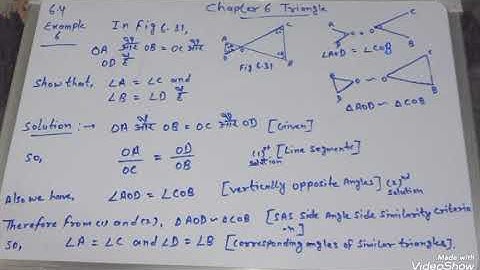 6.4
Chapter 6 Triangle
Example 6
In Fig 6.31,
OA और OB = OC और OD है
Show that, ∠A = ∠C and
∠B = ∠D है
A
D
O
C
B
Fig 6.31
O
C
B
∠AOD = ∠COB
O
O
C
B
△AOD ∼ △COB
Solution :→ OA और OB = OC और OD [Given]
So, OA/OC = OD/OB (1)st solution [Line Segments]
Also we have, ∠AOD = ∠COB [vertically opposite Angles] (2)nd solution
Therefore from (1) and (2), △AOD ∼ △COB [SAS Side Angle Side Similarity Criteria
-n]
So, ∠A = ∠C and ∠D = ∠B [corresponding angles of similar triangles].
Made with
VideoShow